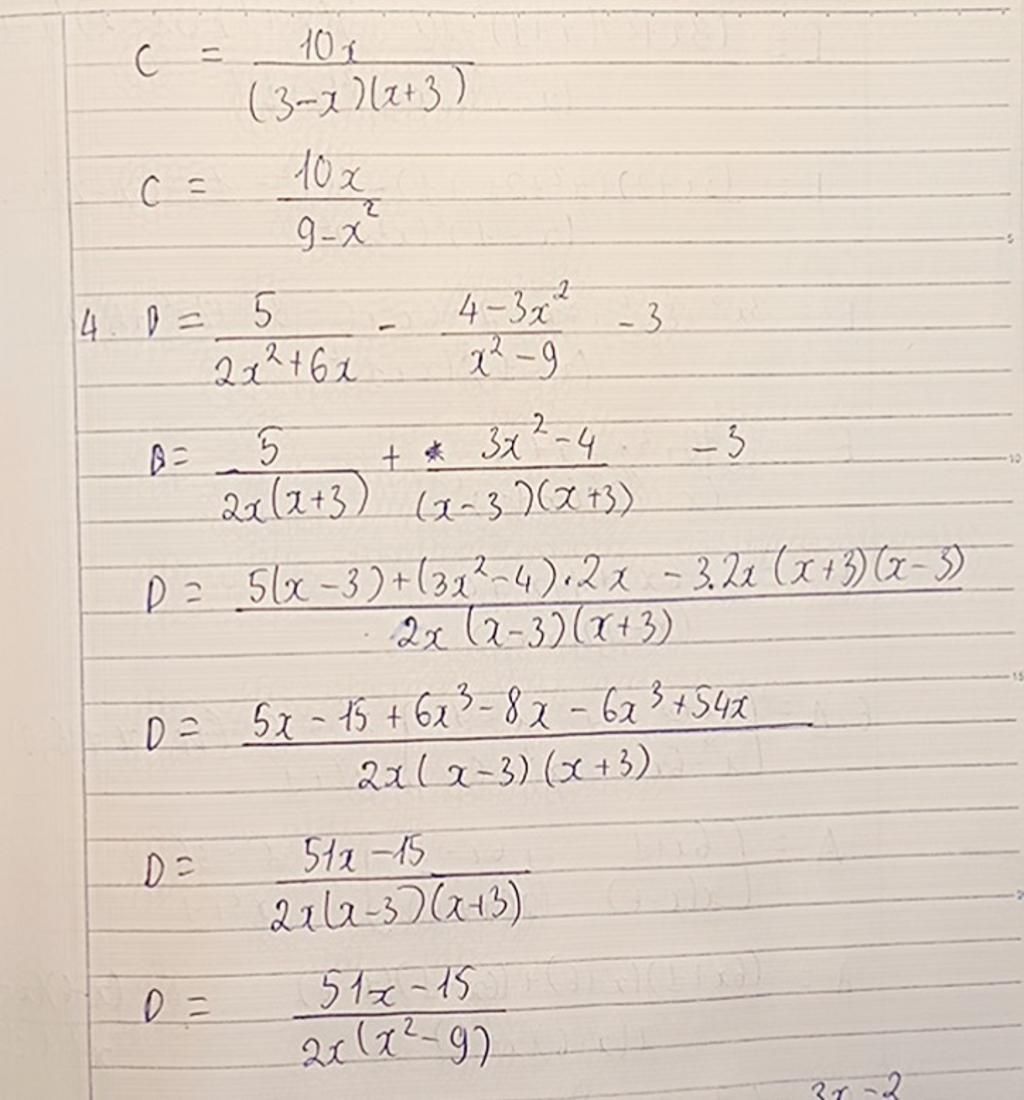 C = 10x / (3-x)(x+3)
C = 10x / 9-x²
4. D = 5 / 2x²+6x - 4-3x² / x²-9 - 3
D = 5 / 2x(x+3) + 3x²-4 / (x-3)(x+3) - 3
D = 5(x-3)+(3x²-4).2x - 3.2x(x+3)(x-3) / 2x(x-3)(x+3)
D = 5x-15+6x³-8x-6x³+54x / 2x(x-3)(x+3)
D = 51x-15 / 2x(x-3)(x+3)
D = 51x-15 / 2x(x²-9)
3x-2